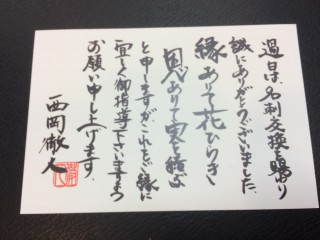 過日は、名刺交換を賜わり
誠にありがとうございました。
縁ありて花ひらき
恩ありて実を結ぶ
と申しますが、これをご縁に
宜しく御指導下さいますよう
お願い申し上げます。
西岡徹人